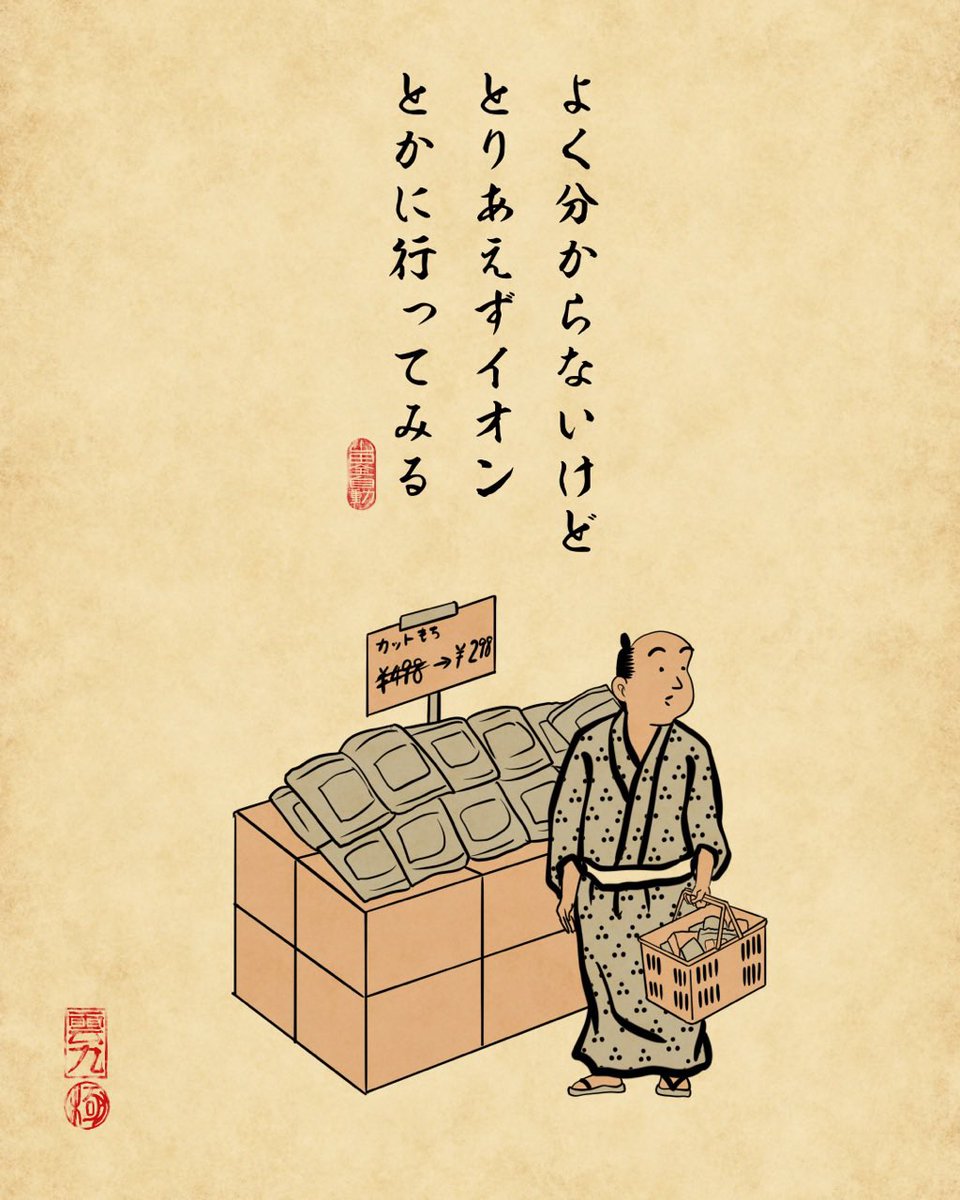 よく分からないけど
とりあえずイオン
とかに行ってみる
カットもち
¥498→¥298